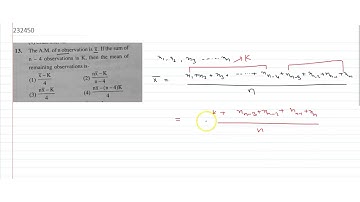 232450
13. The A.M. of n observation is x̄. If the sum of
n – 4 observations is K, then the mean of
remaining observations is
(1) x̄ – K / 4 (2) nx̄ – K / n – 4
(3) nx̄ – K / 4 (4) nx̄ – (n – 4)K / 4
x₁, x₂, x₃ ...... xₙ → K
x̄ = x₁ + x₂ + x₃ + ...... + xₙ₋₄ + xₙ₋₃ + xₙ₋₂ + xₙ₋₁ + xₙ / n
= K + xₙ₋₃ + xₙ₋₂ + xₙ₋₁ + xₙ / n